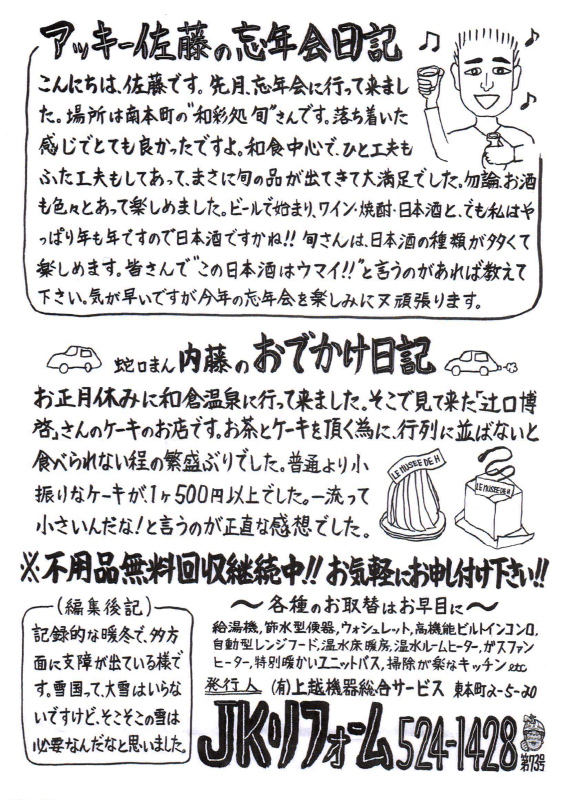 アッキー佐藤の忘年会日記
こんにちは、佐藤です。先月、忘年会に行って来まし
た。場所は南本町の"和彩処 旬"さんです。落ち着いた
感じでとても良かったですよ。和食中心で、ひと工夫も
ふた工夫もしてあって、まさに旬の品が出てきて大満足でした。勿論、お酒
も色々とあって楽しめました。ビールで始まり、ワイン・焼酎・日本酒と、でも私はや
っぱり年も年ですので日本酒ですかね!! 旬さんは、日本酒の種類が多くて
楽しめます。皆さんで"この日本酒はウマイ!!"と言うのがあれば教えて
下さい。気が早いですが今年の忘年会を楽しみに又頑張ります。
蛇口まん 内藤のおでかけ日記
お正月休みに和倉温泉に行って来ました。そこで見て来た「辻口博
啓」さんのケーキのお店です。お茶とケーキを頂く為に、行列に並ばないと
食べられない程の繁盛ぶりでした。普通より小
振りなケーキが、1ヶ500円以上でした。一流って
小さいんだな!と言うのが正直な感想でした。
LE MUSEE DE H
LE MUSEE DE H
※不用品無料回収継続中!! お気軽にお申し付け下さい!!
(編集後記)
記録的な暖冬で、多方
面に支障が出ている様で
す。雪国って、大雪はいらな
いですけど、そこそこの雪は
必要なんだなと思いました。
〜各種のお取替はお早目に〜
給湯機,節水型便器,ウォシュレット,高機能ビルトインコンロ,
自動型レンジフード,温水床暖房,温水ルームヒーター,ガスファン
ヒーター,特別暖かいユニットバス,掃除が楽なキッチン etc
発行人 (有)上越機器総合サービス 東本町2-5-20
JKリフォーム 524-1428
第73号